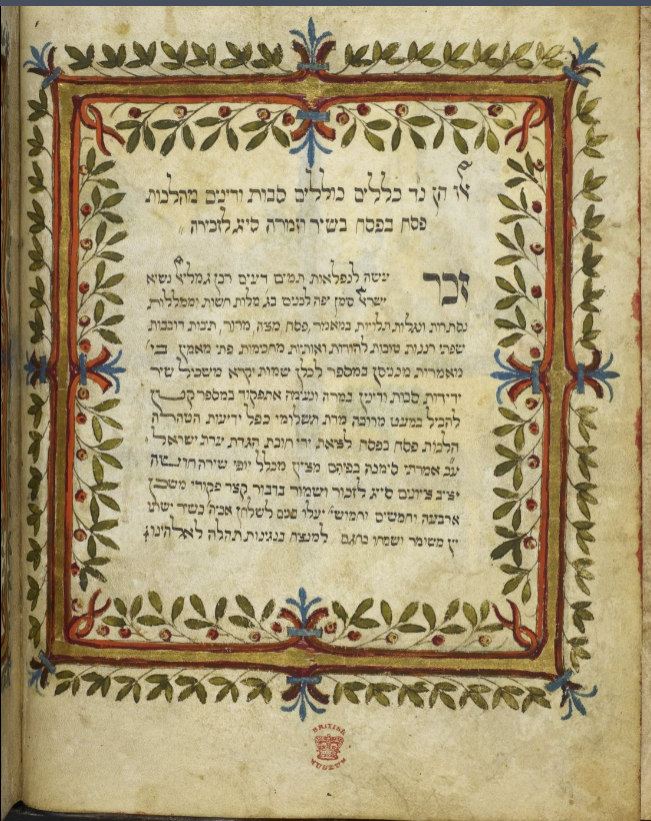 אז הן נד כללים כוללים סבות ודינים מהלכות
פסח בפסח בשיר וזמרה סיג לזכירה
זכר עשה לנפלאות תמים דעים רבן גמליא נשיא
ישרא סימן יפה לבנים בג מלות חשות וממללות
נסתרות ונגלות תלויות במאמר פסח מצה מרור תיבות רוכבות
שפתי רננות טובות להורות ואותיות מחכימות פתי מאמין בני
מאמרות מנגנין במספר לכלן שמות יקרא משכיל שיר
ידידות סבות ודינין במרה ונעימה אתפקיד במספר קטן
להכיל במעט מרובה מדת תשלומי כפל ידיעות הטהרה
הלכות פסח בפסח לצאת ידי חובת הגדת עדת ישראל
על אמרתי סימנה בפיהם מציון מכלל יופי שירה חדשה
יציב ציונים סייג לזכור ושמור בדבור קצר פקודי משכן
ארבעה וחמשים וחמישי יעלו פנים לשלחן אכיה בשיר ישתו
יין משומר וישמחו למנצח בנגינות תהלה לאלהינו
BRITISH
MUSEUM